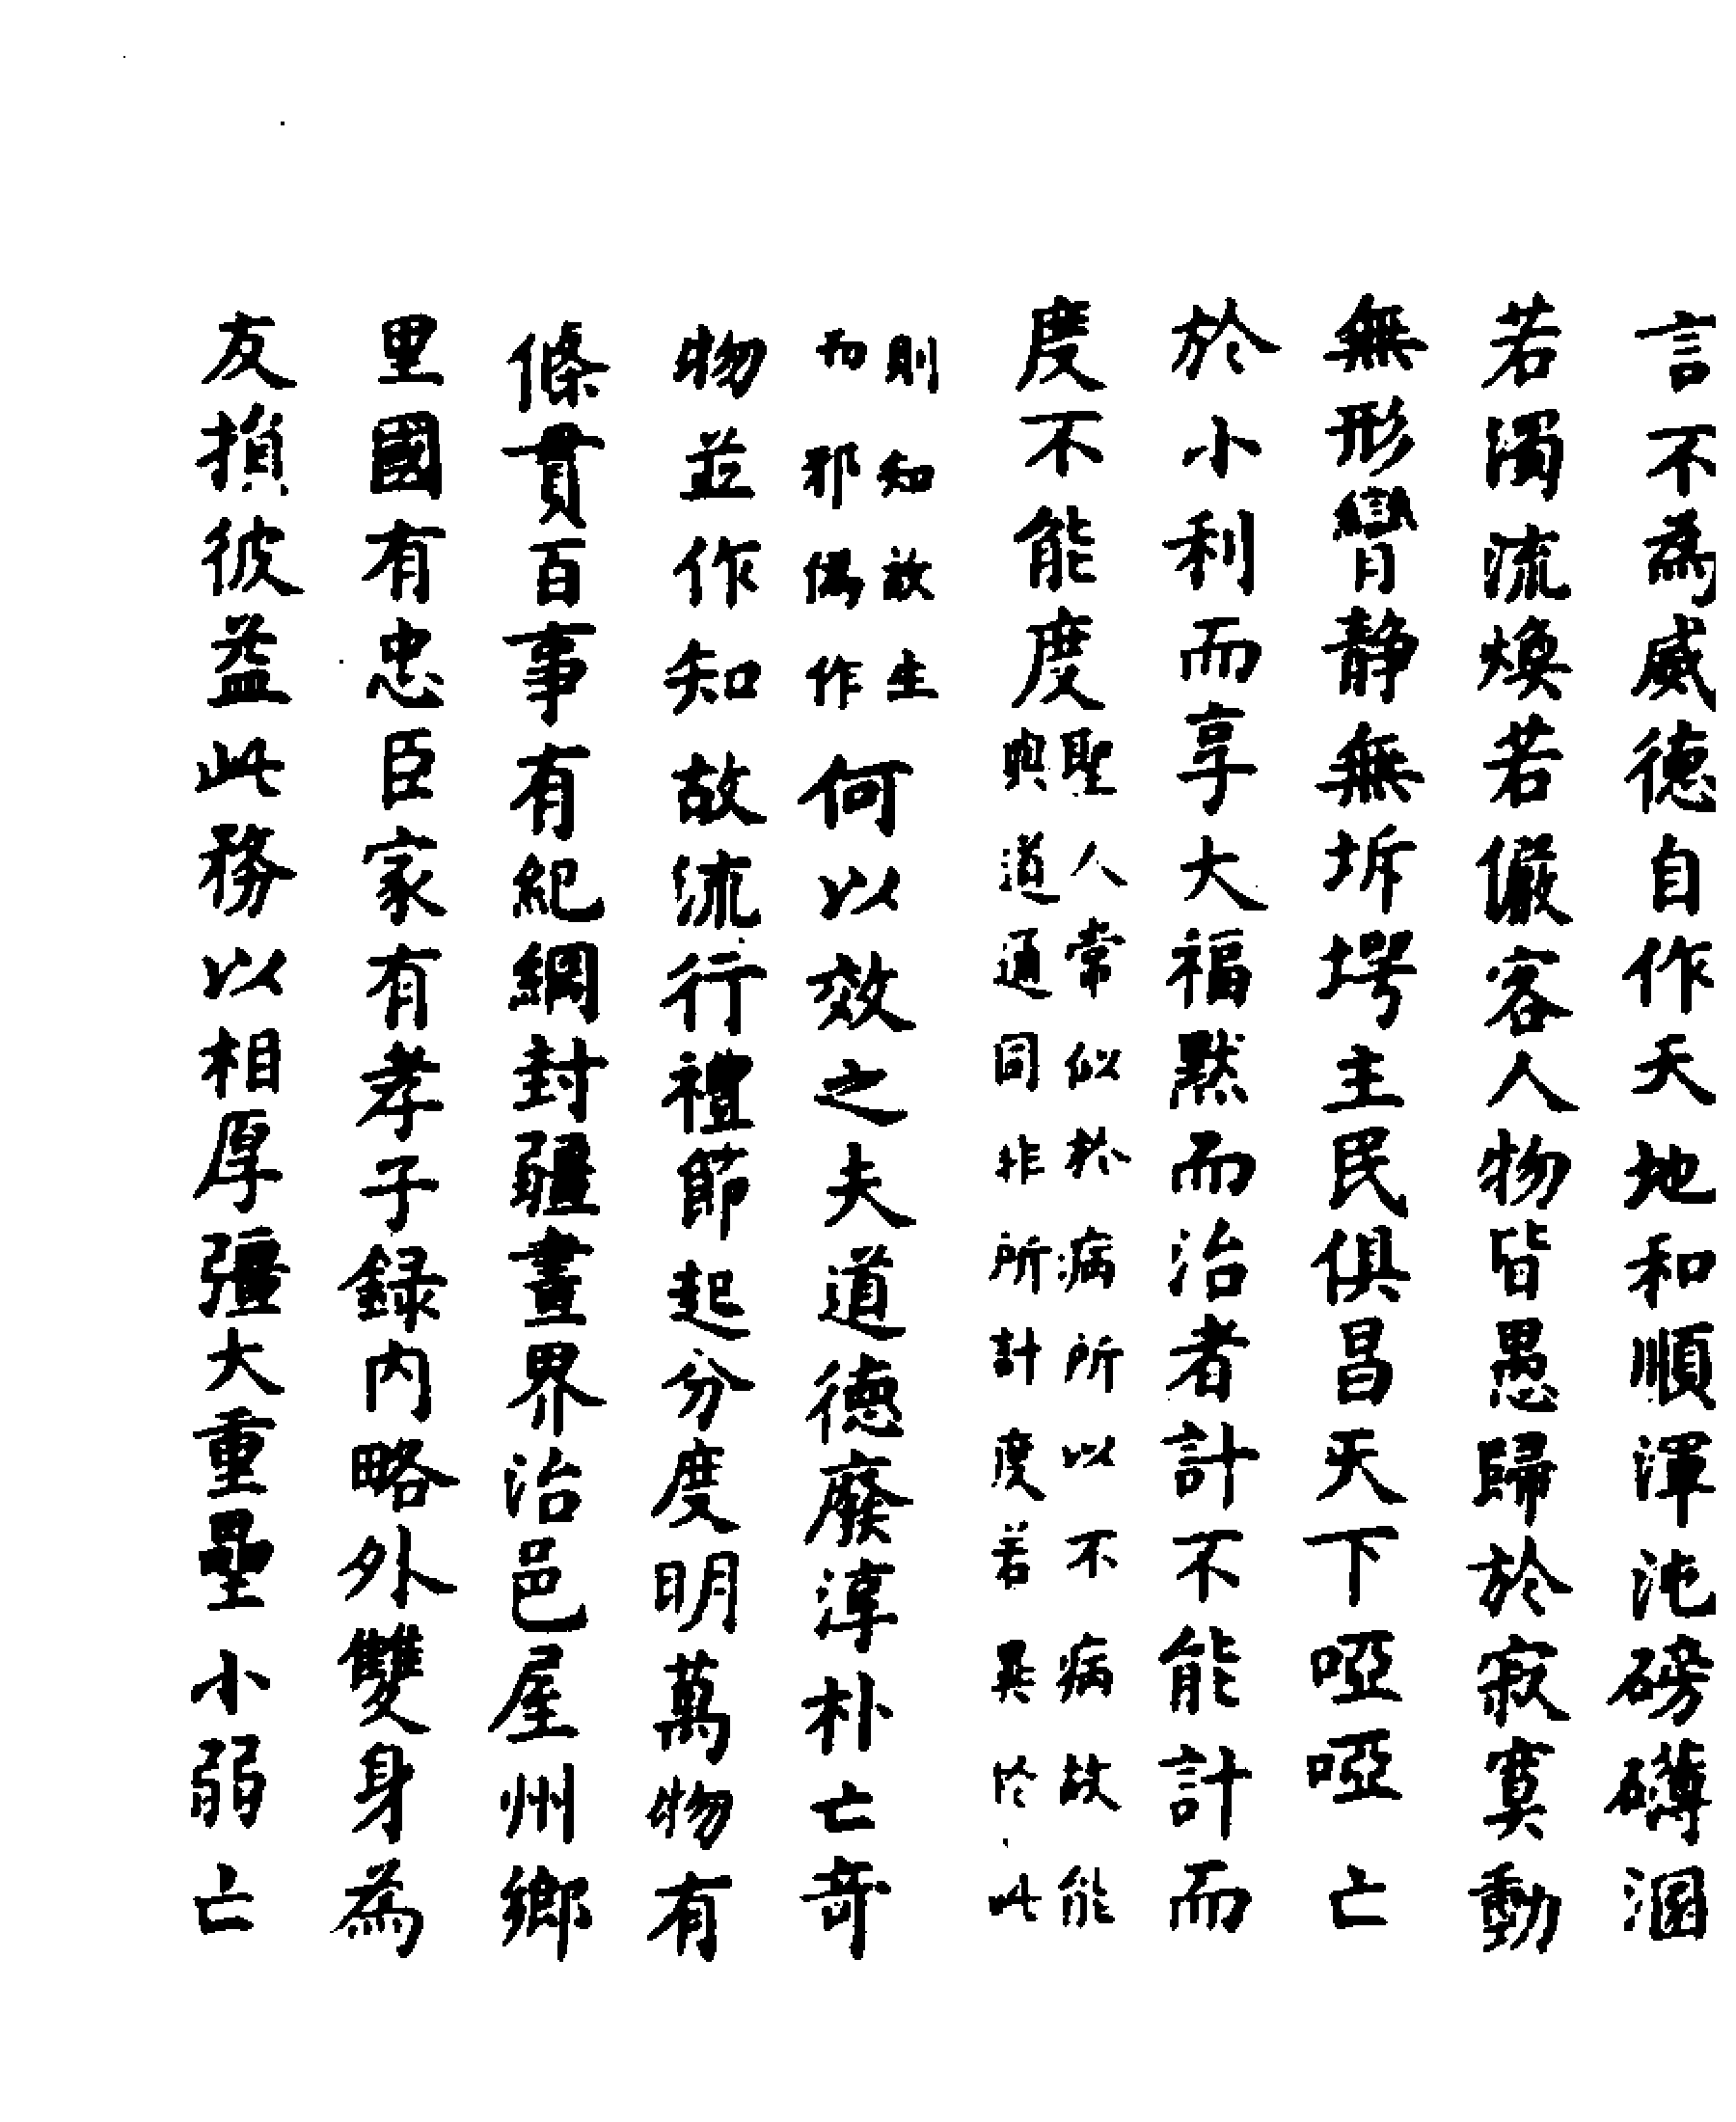 言不為威德自作天地和順渾沌磅礴溷
若濁流煥若儼客人物皆愚歸於寂寞動
無形臀靜無坼堮主民俱昌天下啞啞亡
於小利而享大福默而治者計不能計而
度不能度
聖人常似於病所以不病故能
與道通同非所計度若異於此
則知故生
而邪偽作
何以效之夫道德廢淳朴亡奇
物並作知故流行禮節起分度明萬物有
條貫百事有紀綱封疆畫界治邑屋州鄉
里國有忠臣家有孝子錄內略外雙身為
友損彼益此務以相厚彊大重壘小弱亡